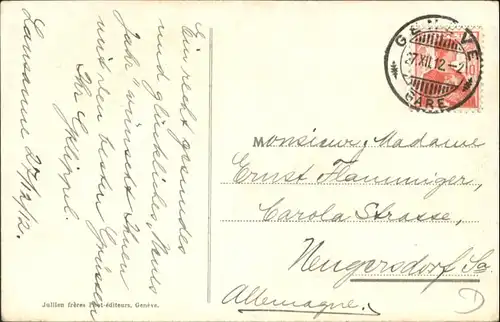 Lausanne 27/12/12.
Ein recht gesundes
und glückliches „Neues
Jahr" wünscht Ihnen
mit den besten Grüssen
Ihr
GENÈVE
27.XII.12.-2
GARE
10
Monsieur, Madame
Ernst Flamminger,
Carola Strasse,
Neugersdorf Sa
Allemagne.
Jullien frères Phot-éditeurs, Genève.